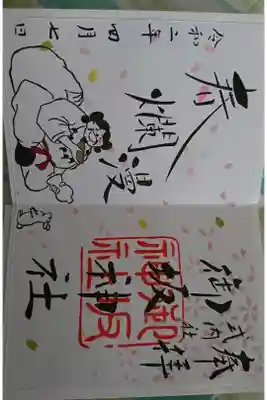 奉拝
式内社
御坂神社
御坂
神社
春爛漫
令和二年四月七日